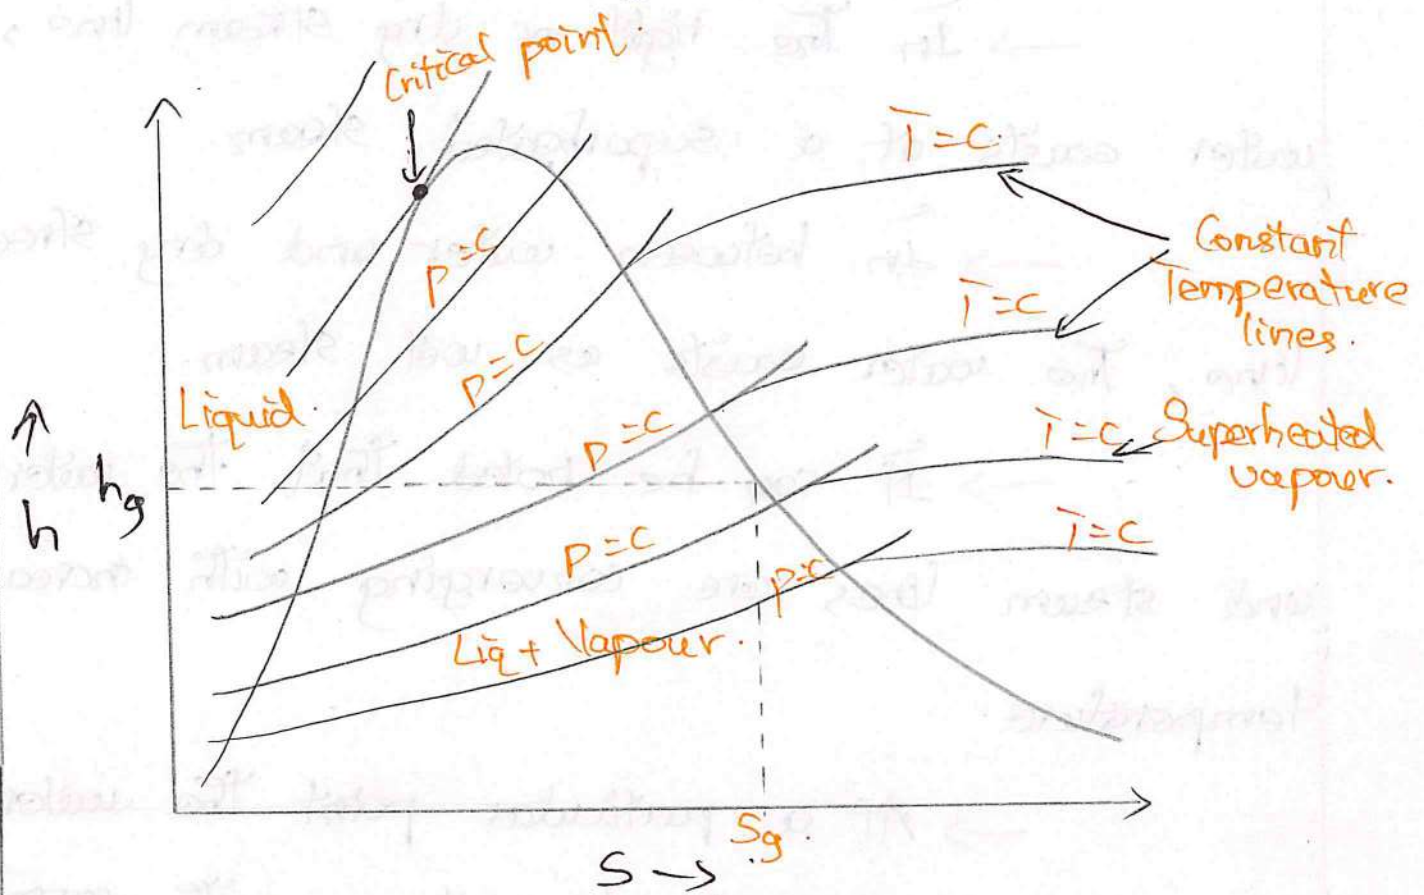 Critical point.
T = C.
Constant
Temperature
lines.
P = C
T = C
P = C
Liquid.
P = C
T = C
Superheated
vapour.
h
hg
P = C
T = C
P = C
Liq + Vapour.
Sg
S →